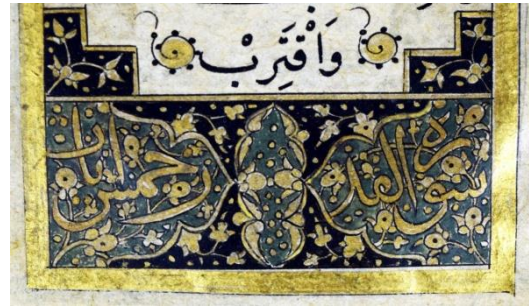 وَاقْتَرِبْ
سوره القدر خمس ايات